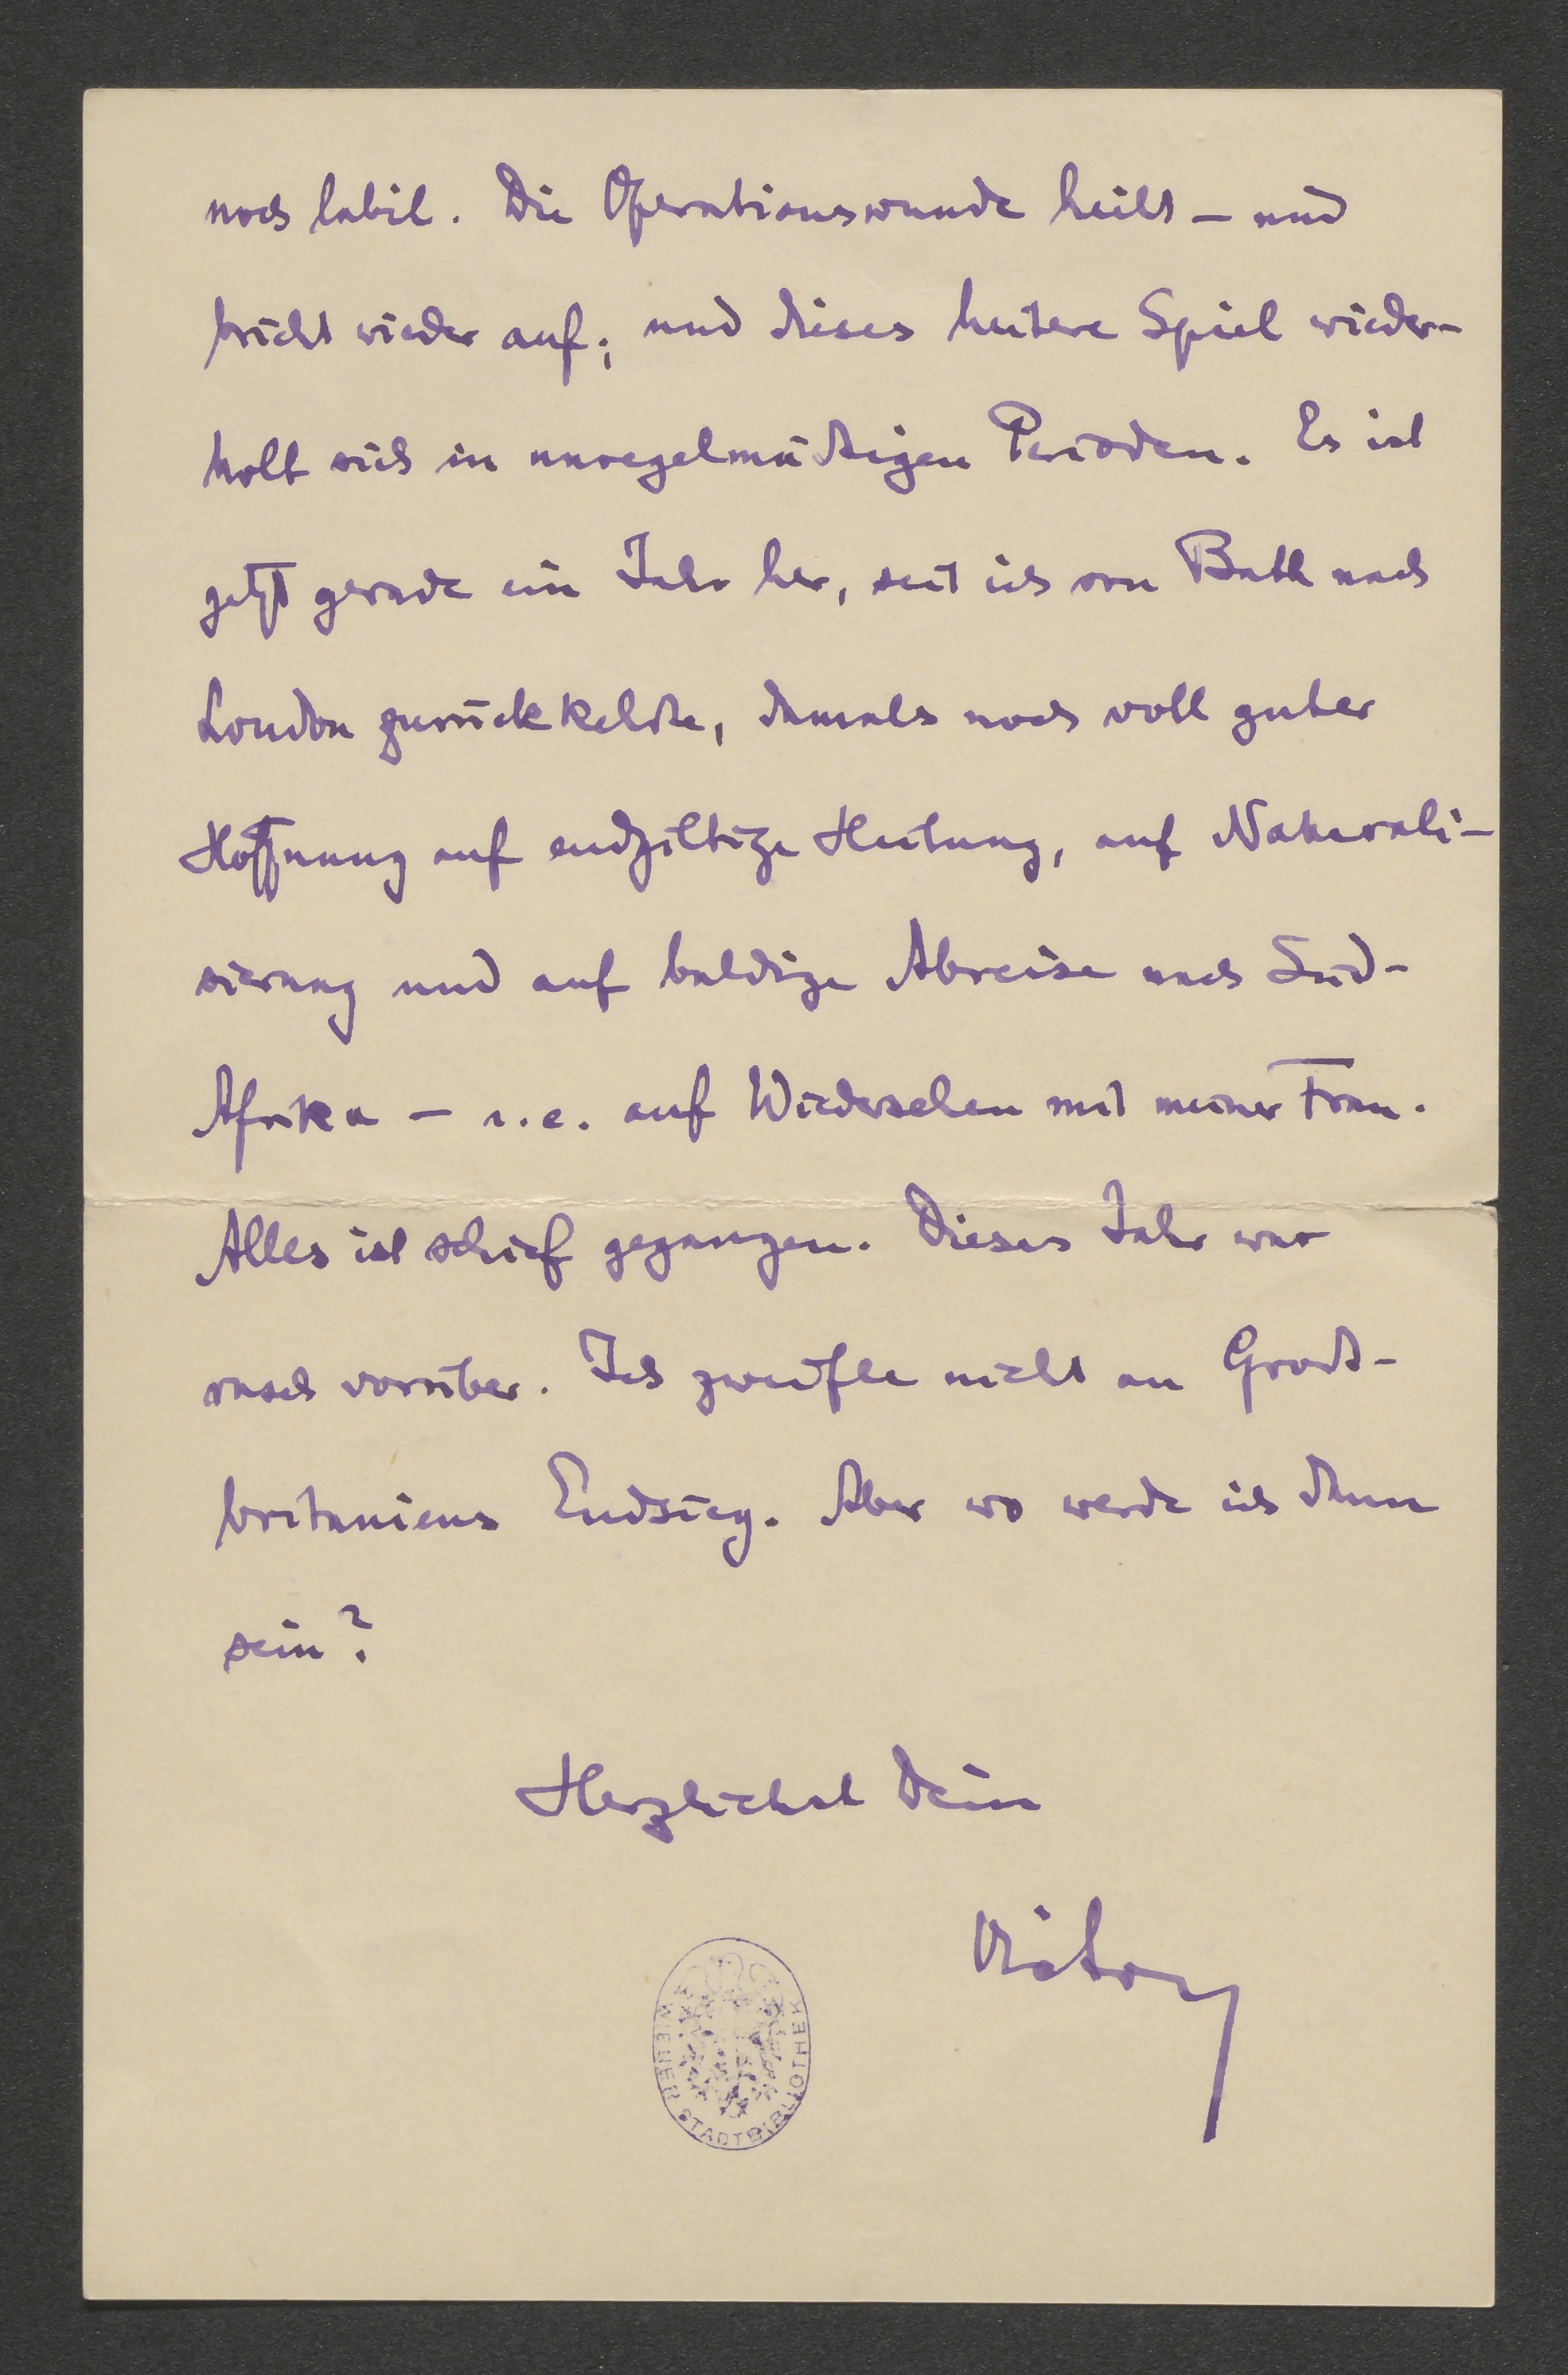 noch labil. Die Operationswunde heilt – und
bricht wieder auf; und dieses heitere Spiel wieder-
holt sich in unregelmäßigen Perioden. Es ist
jetzt gerade ein Jahr her, seit ich von Bath nach
London zurückkehrte, damals noch voll guter
Hoffnung auf endgiltige Heilung, auf Naturali-
sierung und auf baldige Abreise nach Süd-
Afrika – i.e. auf Wiedersehen mit meiner Frau.
Alles ist schief gegangen. Dieses Jahr war
rasch vorüber. Ich zweifle nicht an Groß-
britaniens Endsieg. Aber wo werde ich dann
sein?
Herzlichst Dein
WIENER STADTBIBLIOTHEK